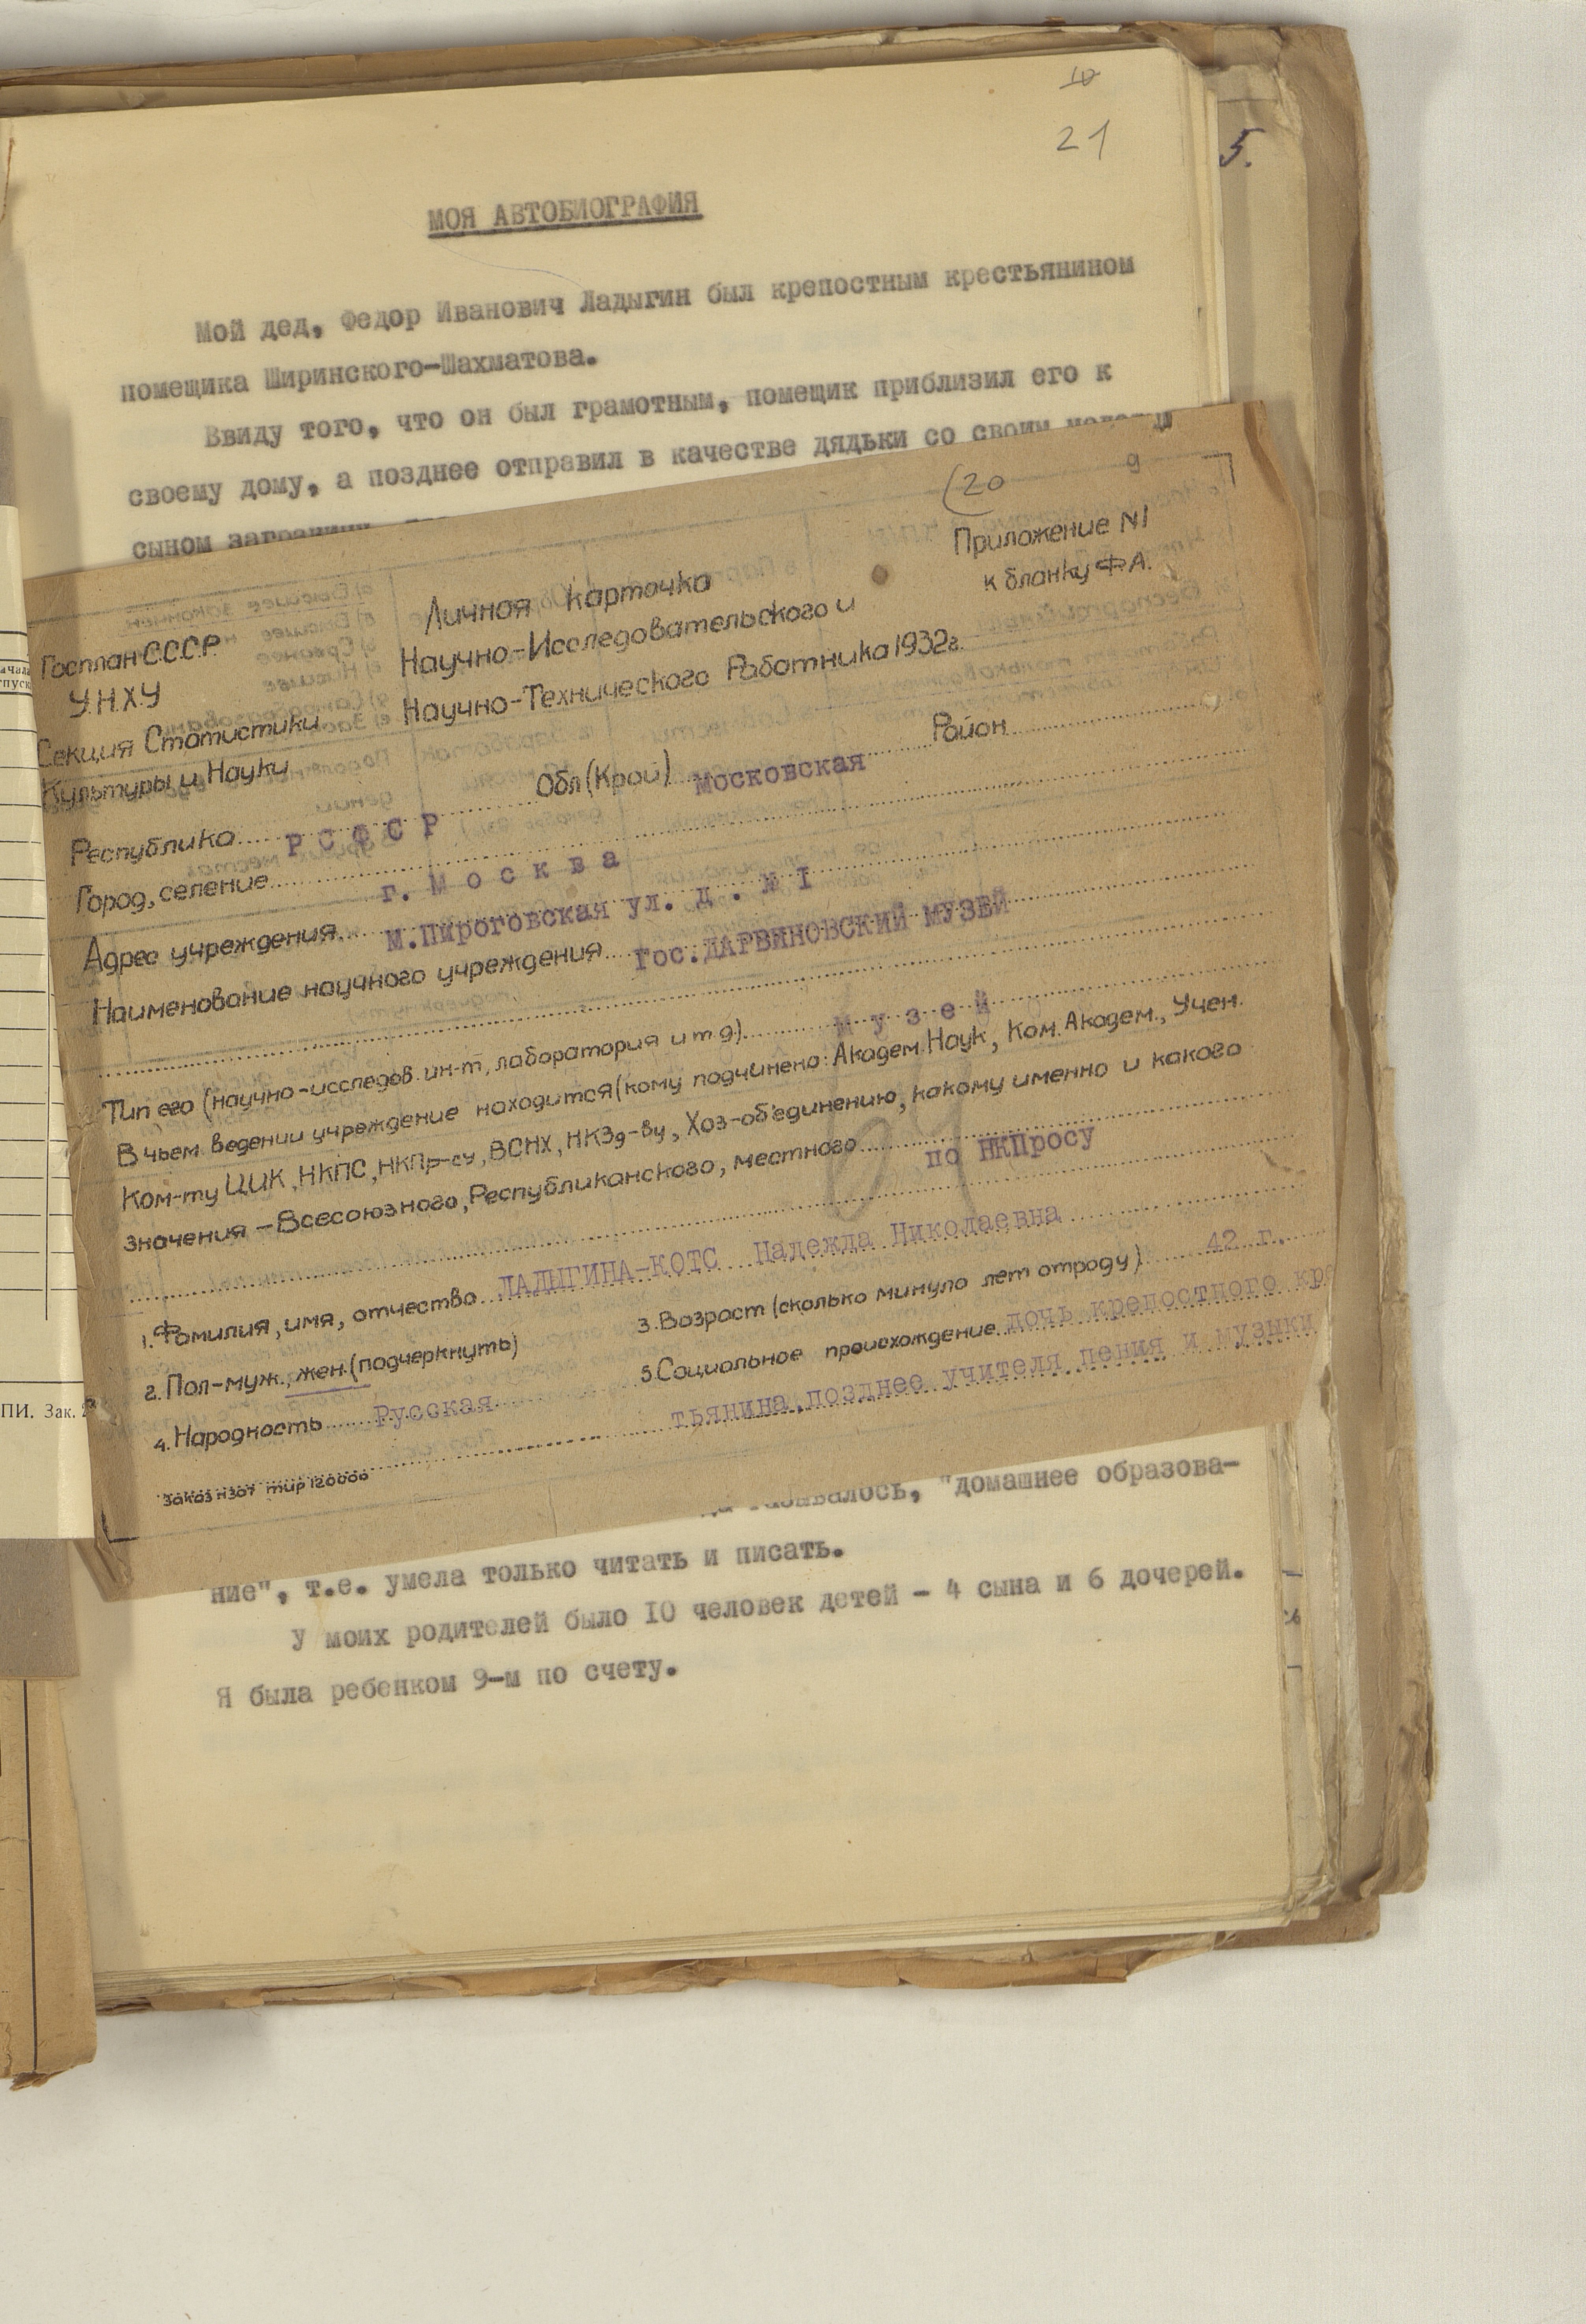 10
21
5.
МОЯ АВТОБИОГРАФИЯ
Мой дед, Федор Иванович Ладыгин был крепостным крестьянином
помещика Ширинского-Шахматова.
Ввиду того, что он был грамотным, помещик приблизил его к
своему дому, а позднее отправил в качестве дядьки со своим
сыном
9
(20
Приложение N1
к бланку ФА.
Госплан С.С.С.Р.
У.Н.Х.У
Секция Статистики
Культуры и Науки
Личная карточка
Научно-Исследовательского и
Научно-Технического Работника 1932г.
Республика РСФСР Обл(Край) московская Район
Город, селение г. Москва
Адрес учреждения М.Пироговская ул. д. № I
Наименование научного учреждения Гос.ДАРВИНОВСКИЙ МУЗЕЙ
Тип его (научно-исследов. ин-т, лаборатория и т д) музей
В чьем ведении учреждение находится (кому подчинено: Академ. Наук, Ком. Академ., Учен.
Ком-ту ЦИК, НКПС, НКПр-су, ВСНХ, НКЗд-ву, Хоз-об'единению, какому именно и какого
значения - Всесоюзного, Республиканского, местного по НКПросу
1. Фамилия, имя, отчество ЛАДЫГИНА-КОТС Надежда Николаевна
2. Пол-муж., жен. (подчеркнуть) 3. Возраст (сколько минуло лет отроду) 42 г.
4. Народность Русская 5. Социальное происхождение дочь крепостного кре
тьянина, позднее учителя пения и музыки
Заказ № 307 тир 120000
ПИ. Зак.
"домашнее образова-
ние", т.е. умела только читать и писать.
У моих родителей было 10 человек детей - 4 сына и 6 дочерей.
Я была ребенком 9-м по счету.